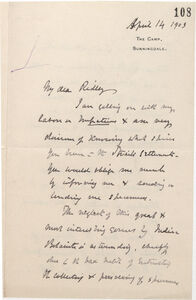 108
April 14 1903
THE CAMP,
SUNNINGDALE.
My dear Ridley
I am getting on with my
labor on Impatiens & am very
desirous of knowing what species
you have in the Straits Settlements.
You would oblige me much
by informing me & sending or
lending me specimens.
The neglect of this great &
most interesting genus by Indian
Botanists is astounding, chiefly
due to the bad habit of
the collecting & preserving of specimens